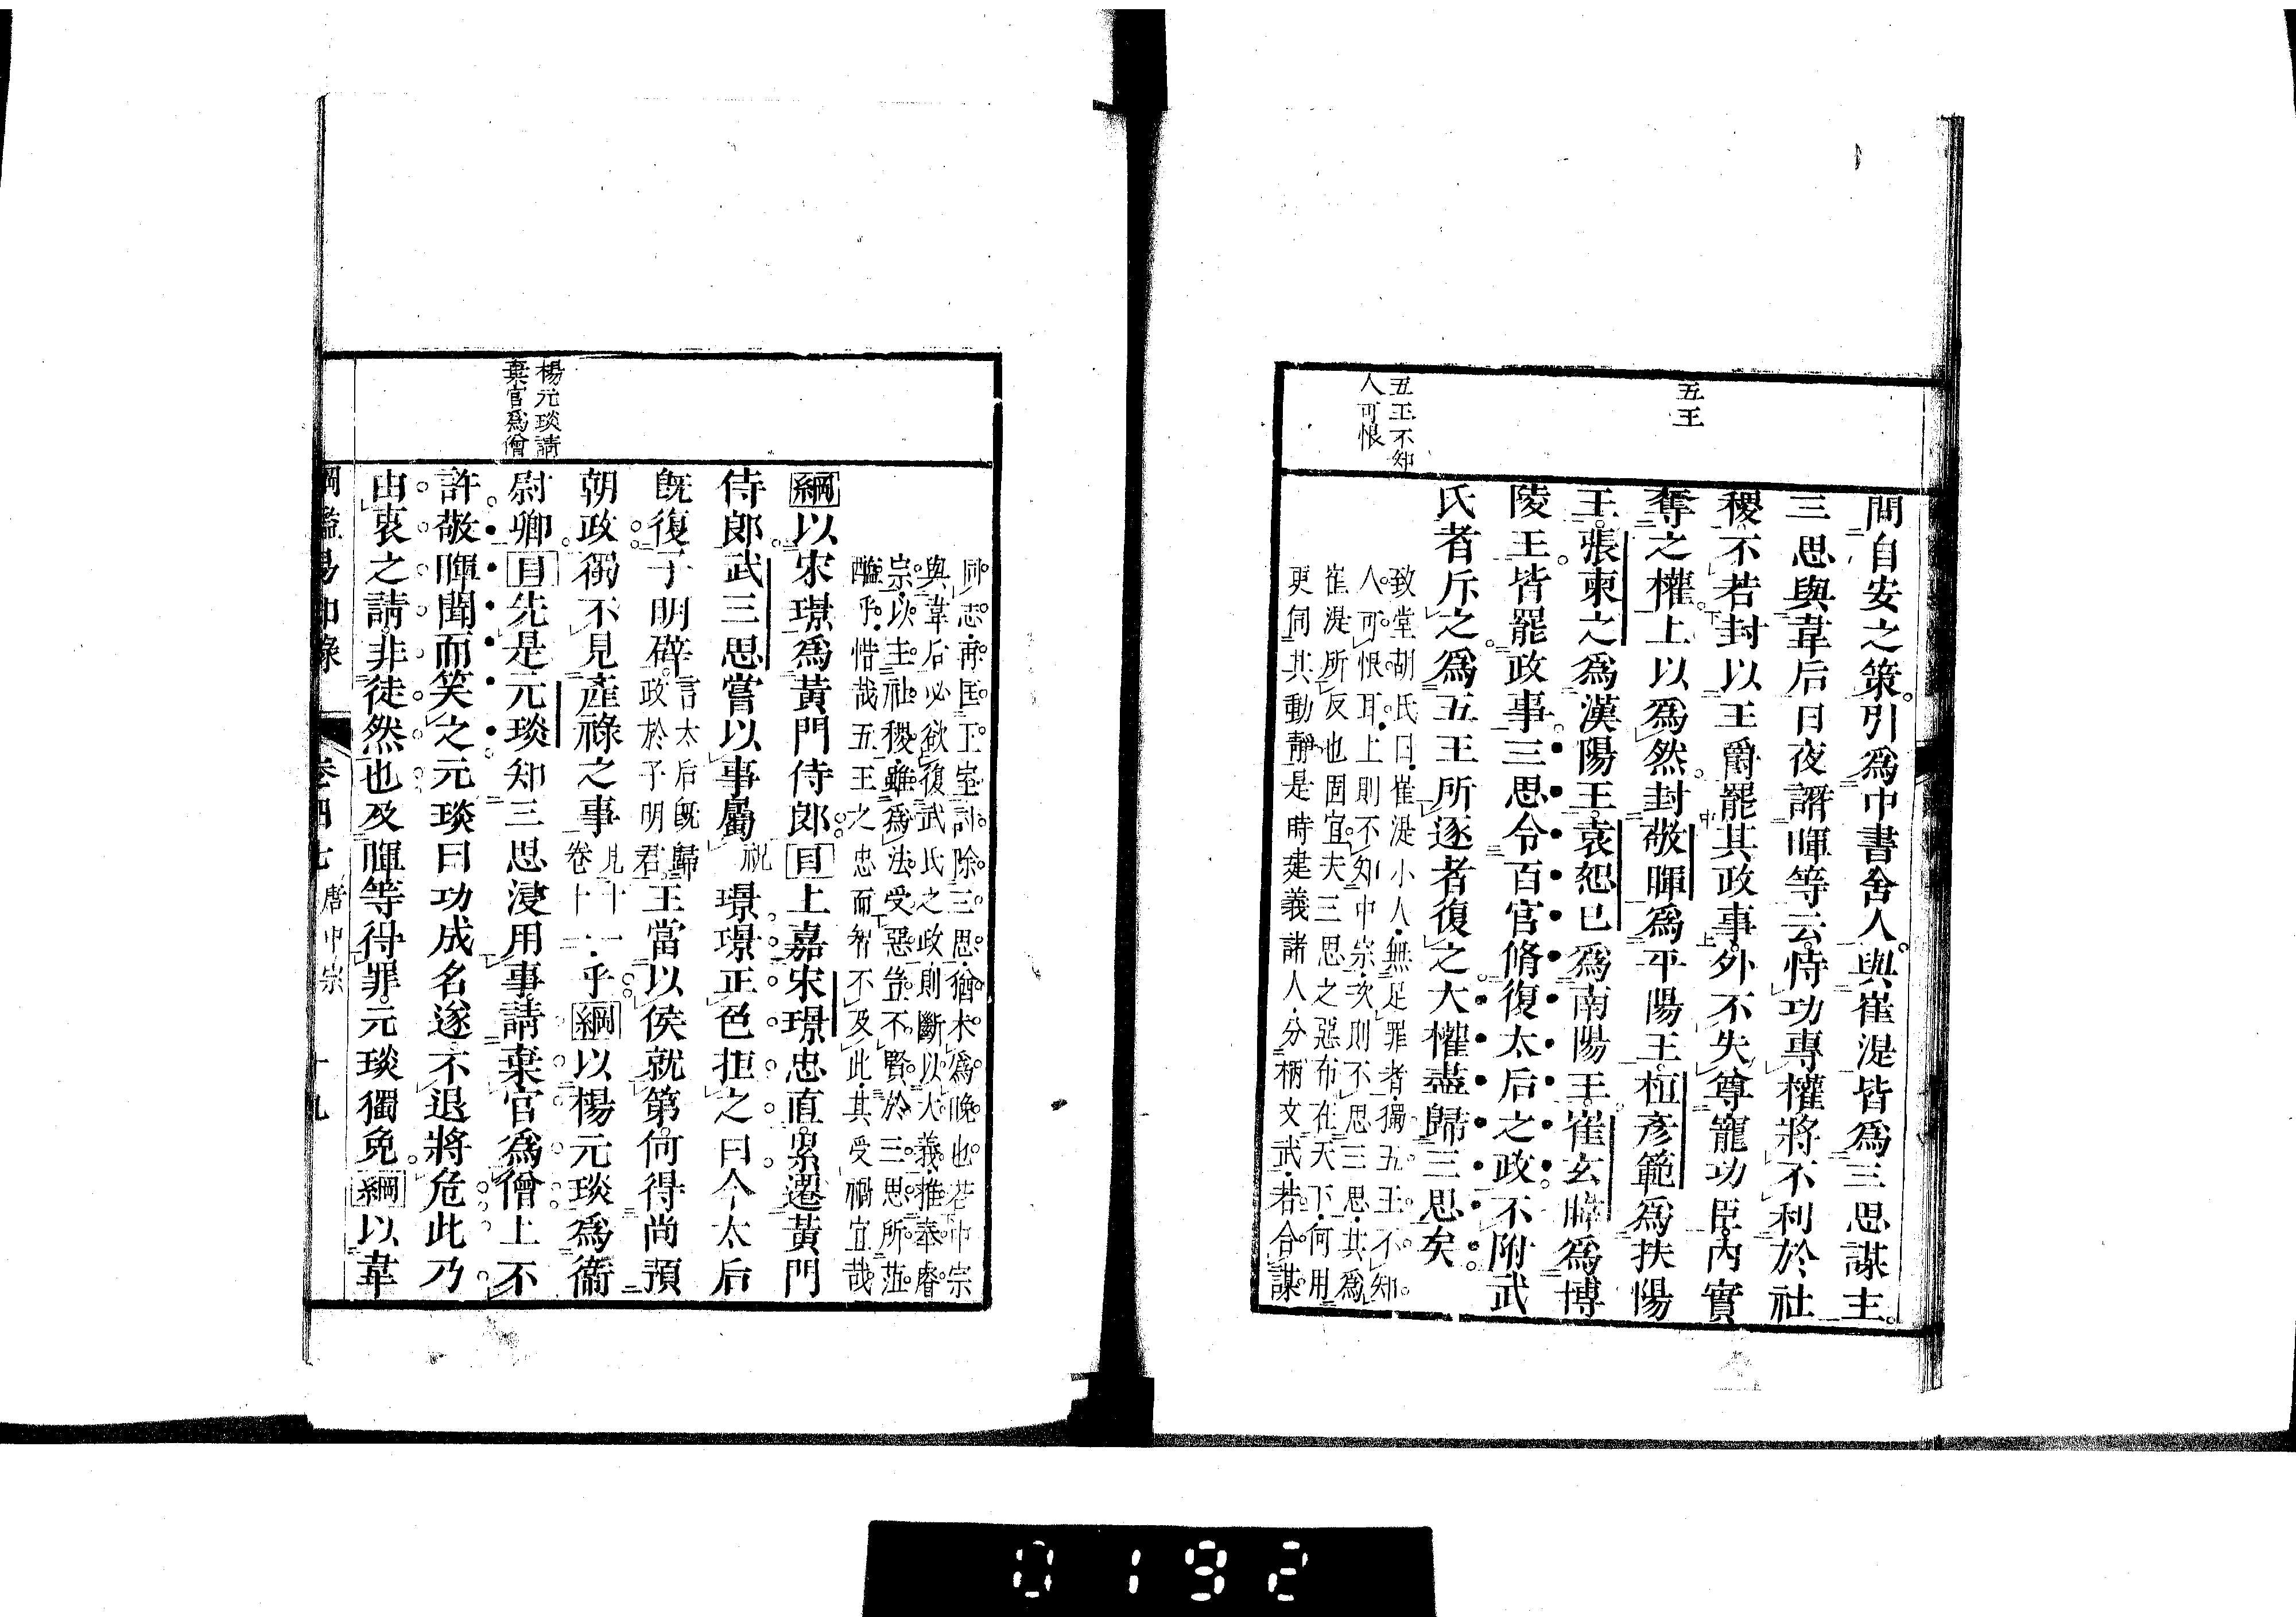 五王
五王不知
人可恨
問自安之策。引爲中書舍人。與崔湜皆爲三思謀主。
三思與韋后日夜譖暉等云。恃功專權。將不利於社
稷。不若封以王爵。罷其政事。外不失尊寵功臣。內實
奪之權。上以爲然。封敬暉爲平陽王。桓彥範爲扶陽
王。張柬之爲漢陽王。袁恕已爲南陽王。崔玄暐爲博
陵王。皆罷政事。三思令百官脩復太后之政。不附武
氏者斥之。爲五王所逐者復之。大權盡歸三思矣
致堂胡氏曰。崔湜小人。無足罪者。獨五王不知
人。可恨耳。上則不知中宗。次則不思三思。其爲
崔湜所反也固宜。夫三思之惡布在天下。何用
更伺其動靜。是時建義諸人。分柄文武。若合謀
同志。再匡王室。討除三思。猶未爲晚也。若中宗
與韋后必欲復武氏之政。則斷以大義。推奉睿
宗。以主社稷。雖爲法受惡。豈不賢於三思所葅
醢乎。惜哉五王之忠而智不及此。其受禍宜哉
綱以宋璟爲黃門侍郎。目上嘉宋璟忠直。累遷黃門
侍郎。武三思嘗以事屬祝璟。璟正色拒之曰。今太后
旣復子明辟。言太后旣歸政於子明君。王當以侯就第。何得尚預
朝政。獨不見產祿之事見十一卷十一。乎綱以楊元琰爲衞
尉卿目先是元琰知三思浸用事。請棄官爲僧。上不
許。敬暉聞而笑之。元琰曰。功成名遂。不退將危。此乃
由衷之請。非徒然也。及暉等得罪。元琰獨免。綱以韋
楊元琰請
棄官爲僧
綱鑑易知錄 卷四七 唐中宗 十九
0192